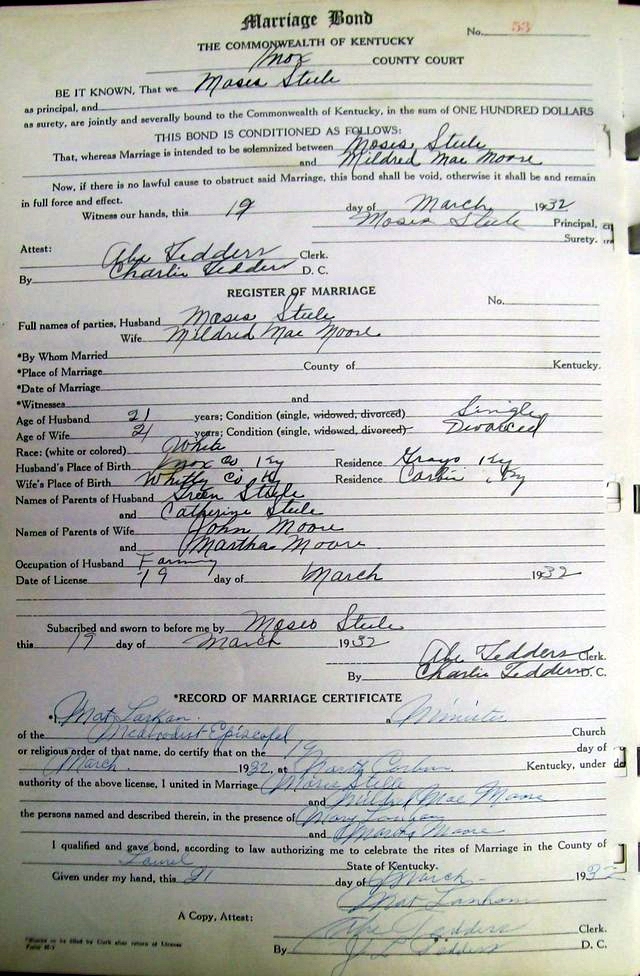 Marriage Bond
No. 53
THE COMMONWEALTH OF KENTUCKY
Knox COUNTY COURT
BE IT KNOWN, That we Moses Steele
as principal, and
as surety, are jointly and severally bound to the Commonwealth of Kentucky, in the sum of ONE HUNDRED DOLLARS
THIS BOND IS CONDITIONED AS FOLLOWS:
That, whereas Marriage is intended to be solemnized between Moses Steele
and Mildred Mae Moore
Now, if there is no lawful cause to obstruct said Marriage, this bond shall be void, otherwise it shall be and remain
in full force and effect.
Witness our hands, this 19 day of March 1932
Moses Steele Principal,
Surety.
Attest: Abe Tedders Clerk.
By Charlie Tedders D. C.
REGISTER OF MARRIAGE
No.
Full names of parties, Husband Moses Steele
Wife Mildred Mae Moore
*By Whom Married
*Place of Marriage County of Kentucky.
*Date of Marriage
*Witnesses and
Age of Husband 21 years; Condition (single, widowed, divorced) Single
Age of Wife 21 years; Condition (single, widowed, divorced) Divorced
Race: (white or colored) White
Husband's Place of Birth Knox Co Ky Residence Grays Ky
Wife's Place of Birth Whitley Co Ky Residence Corbin, Ky
Names of Parents of Husband Green Steele
and Catherine Steele
Names of Parents of Wife John Moore
and Martha Moore
Occupation of Husband Farming
Date of License 19 day of March 1932
Subscribed and sworn to before me by Moses Steele
this 19 day of March 1932
Abe Tedders Clerk.
By Charlie Tedders D. C.
*RECORD OF MARRIAGE CERTIFICATE
*I, Mat a Minister
of the Methodist Episcopal Church
or religious order of that name, do certify that on the 19 day of
March 1932, at North Corbin Kentucky, under
authority of the above license, I united in Marriage Steele
and Mildred Mae Moore
the persons named and described therein, in the presence of Mary
and Martha Moore
I qualified and gave bond, according to law authorizing me to celebrate the rites of Marriage in the County of
Laurel State of Kentucky.
Given under my hand, this 21 day of March 1932
Mat Lanham
A Copy, Attest: Abe Tedders Clerk.
By J L Tedders D. C.
*Blanks to be filled by Clerk after return of License